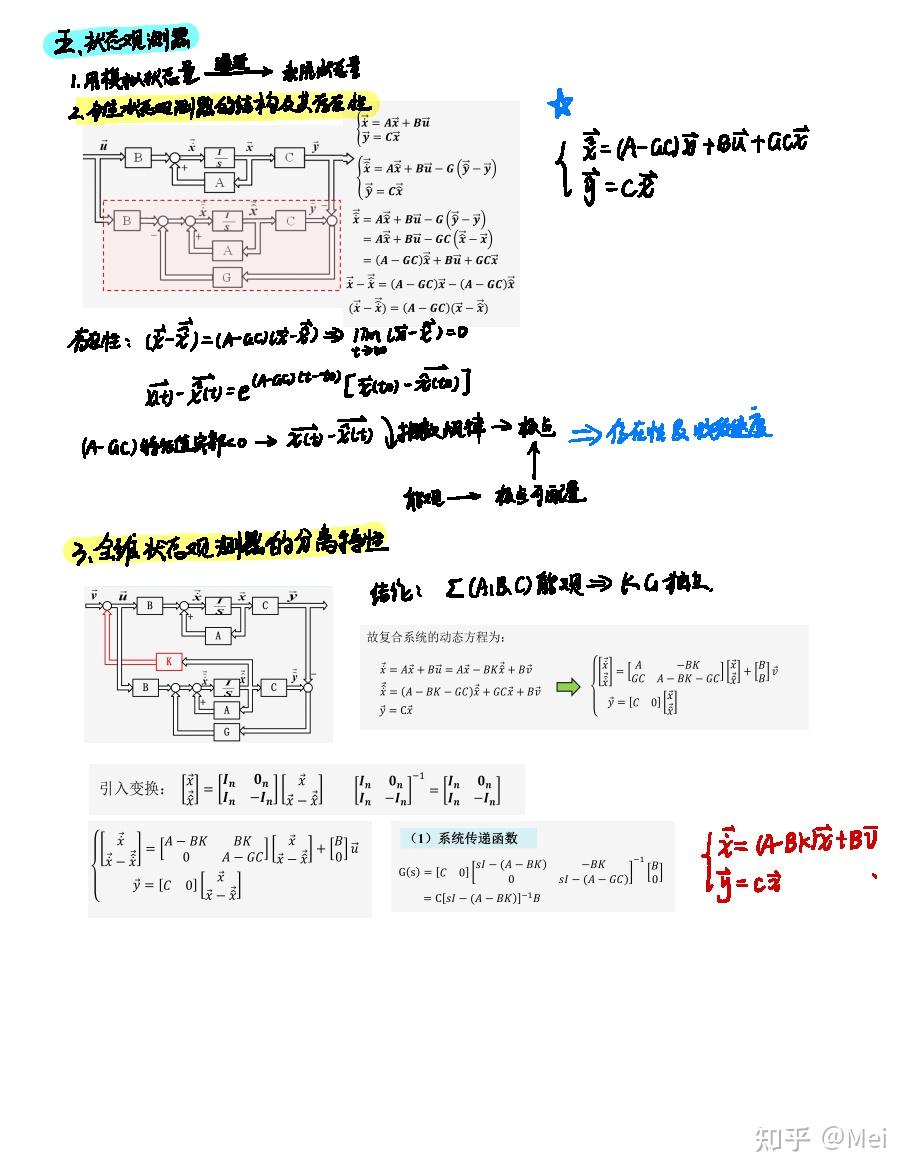 五、状态观测器
1. 用模拟状态量 逼近→ 实际状态量
2. 全维状态观测器的结构及其存在性
u⃗ B ẋ⃗ I/s x⃗ C y⃗
+ A
B − x̂⃗̇ I/s x̂⃗ C ŷ⃗ −
+ A
G
{ẋ⃗ = Ax⃗ + Bu⃗
y⃗ = Cx⃗
{x̂⃗̇ = Ax̂⃗ + Bu⃗ − G(ŷ⃗ − y⃗)
ŷ⃗ = Cx̂⃗
x̂⃗̇ = Ax̂⃗ + Bu⃗ − G(ŷ⃗ − y⃗)
= Ax̂⃗ + Bu⃗ − GC(x̂⃗ − x⃗)
= (A − GC)x̂⃗ + Bu⃗ + GCx⃗
ẋ⃗ − x̂⃗̇ = (A − GC)x⃗ − (A − GC)x̂⃗
(ẋ⃗ − x̂⃗̇) = (A − GC)(x⃗ − x̂⃗)
☆
{x̂⃗̇ = (A-GC)x̂⃗ + Bu⃗ + GCx⃗
y⃗ = Cx⃗
存在性: (ẋ⃗-x̂⃗̇) = (A-GC)(x⃗-x̂⃗) ⇒ lim t→∞ (x⃗-x̂⃗) = 0
x⃗(t) - x̂⃗(t) = e^(A-GC)(t-t0) [x⃗(t0) - x̂⃗(t0)]
(A-GC)特征值实部<0 → x⃗(t) - x̂⃗(t) ↓ 指数规律 → 极点 ⇒ 存在性及收敛速度
能观 → 极点可配置
3、全维状态观测器的分离特性
结论: Σ(A,B,C)能观 ⇒ K G 独立
v⃗ u⃗ B ẋ⃗ I/s x⃗ C y⃗
+ A
K
B x̂⃗̇ I/s x̂⃗ C ŷ⃗ −
+ A
G
故复合系统的动态方程为:
ẋ⃗ = Ax⃗ + Bu⃗ = Ax⃗ − BKx̂⃗ + Bv⃗
x̂⃗̇ = (A − BK − GC)x̂⃗ + GCx⃗ + Bv⃗
y⃗ = Cx⃗
{[ẋ⃗; x̂⃗̇] = [A −BK; GC A − BK − GC][x⃗; x̂⃗] + [B; B]v⃗
y⃗ = [C 0][x⃗; x̂⃗]
引入变换: [x⃗; x̂⃗] = [Iₙ 0ₙ; Iₙ −Iₙ][x⃗; x⃗ − x̂⃗] [Iₙ 0ₙ; Iₙ −Iₙ]⁻¹ = [Iₙ 0ₙ; Iₙ −Iₙ]
{[ẋ⃗; ẋ⃗ − x̂⃗̇] = [A − BK BK; 0 A − GC][x⃗; x⃗ − x̂⃗] + [B; 0]u⃗
y⃗ = [C 0][x⃗; x⃗ − x̂⃗]
(1)系统传递函数
G(s) = [C 0][sI − (A − BK) −BK; 0 sI − (A − GC)]⁻¹[B; 0]
= C[sI − (A − BK)]⁻¹B
{ẋ⃗ = (A-BK)x⃗ + Bv⃗
y⃗ = Cx⃗
知乎 @Mei